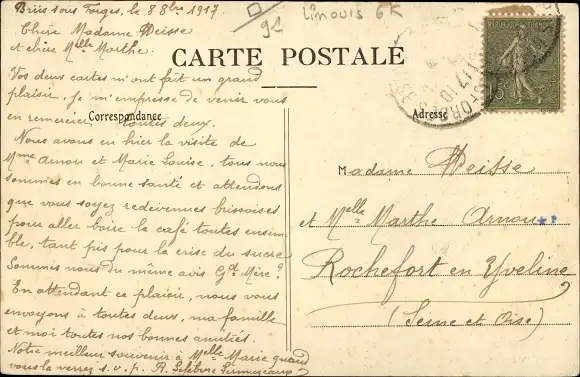 Briis sous Forges, le 8 8bre 1917
91 Limours 6K
Chère Madame Weisse
et chère Melle Marthe.
CARTE POSTALE
Vos deux cartes m'ont fait un grand
plaisir. Je m'empresse de venir vous
en remercier toutes deux.
Correspondance
Nous avons eu hier la visite de
Mme Arnou et Marie Louise, tous nous
sommes en bonne santé et attendons
que vous soyez redevenues brissoises
pour aller boire le café toutes ensem
ble, tant pis pour la crise du sucre
Sommes nous du même avis Gd Mère ?
En attendant ce plaisir, nous vous
envoyons à toutes deux, ma famille
et moi toutes nos bonnes amitiés.
Notre meilleur souvenir à Melle Marie quand
vous la verrez s.v.p. A. Lefebvre
Adresse
Madame Weisse
et Melle Marthe Arnou
Rochefort en Yveline
(Seine et Oise)
15